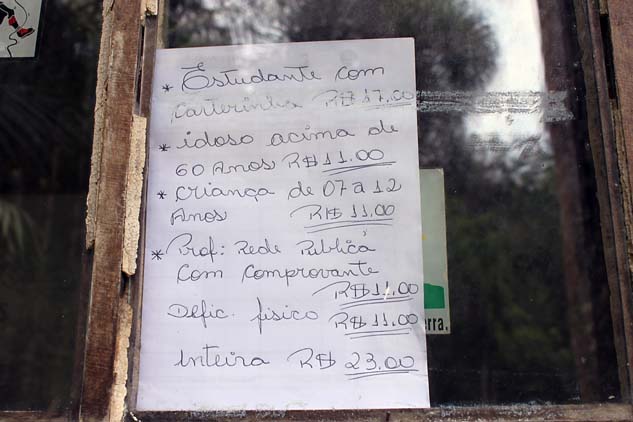 * Estudante com
carterinha R$ 17.00
* idoso acima de
60 Anos R$ 11.00
* criança de 07 a 12
Anos R$ 11.00
* Prof: Rede Publica
com comprovante
R$ 11.00
Defic. fisico R$ 11.00
inteira R$ 23.00
rra.